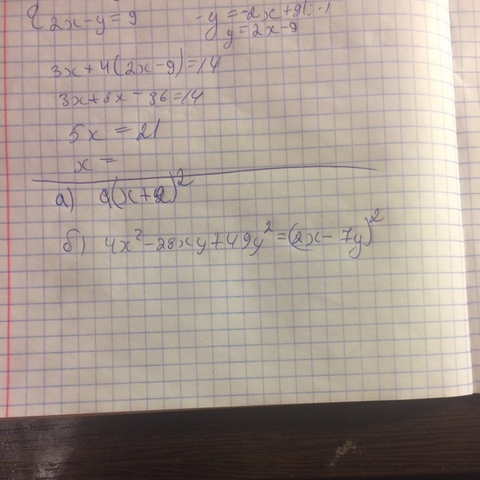 { 2x-y=9    -y=-2x+9|:-1
y=2x-9
3x+4(2x-9)=14
3x+8x-36=14
5x = 21
x =
а) (x+2)²
б) 4x²-28xy+49y²=(2x-7y)²